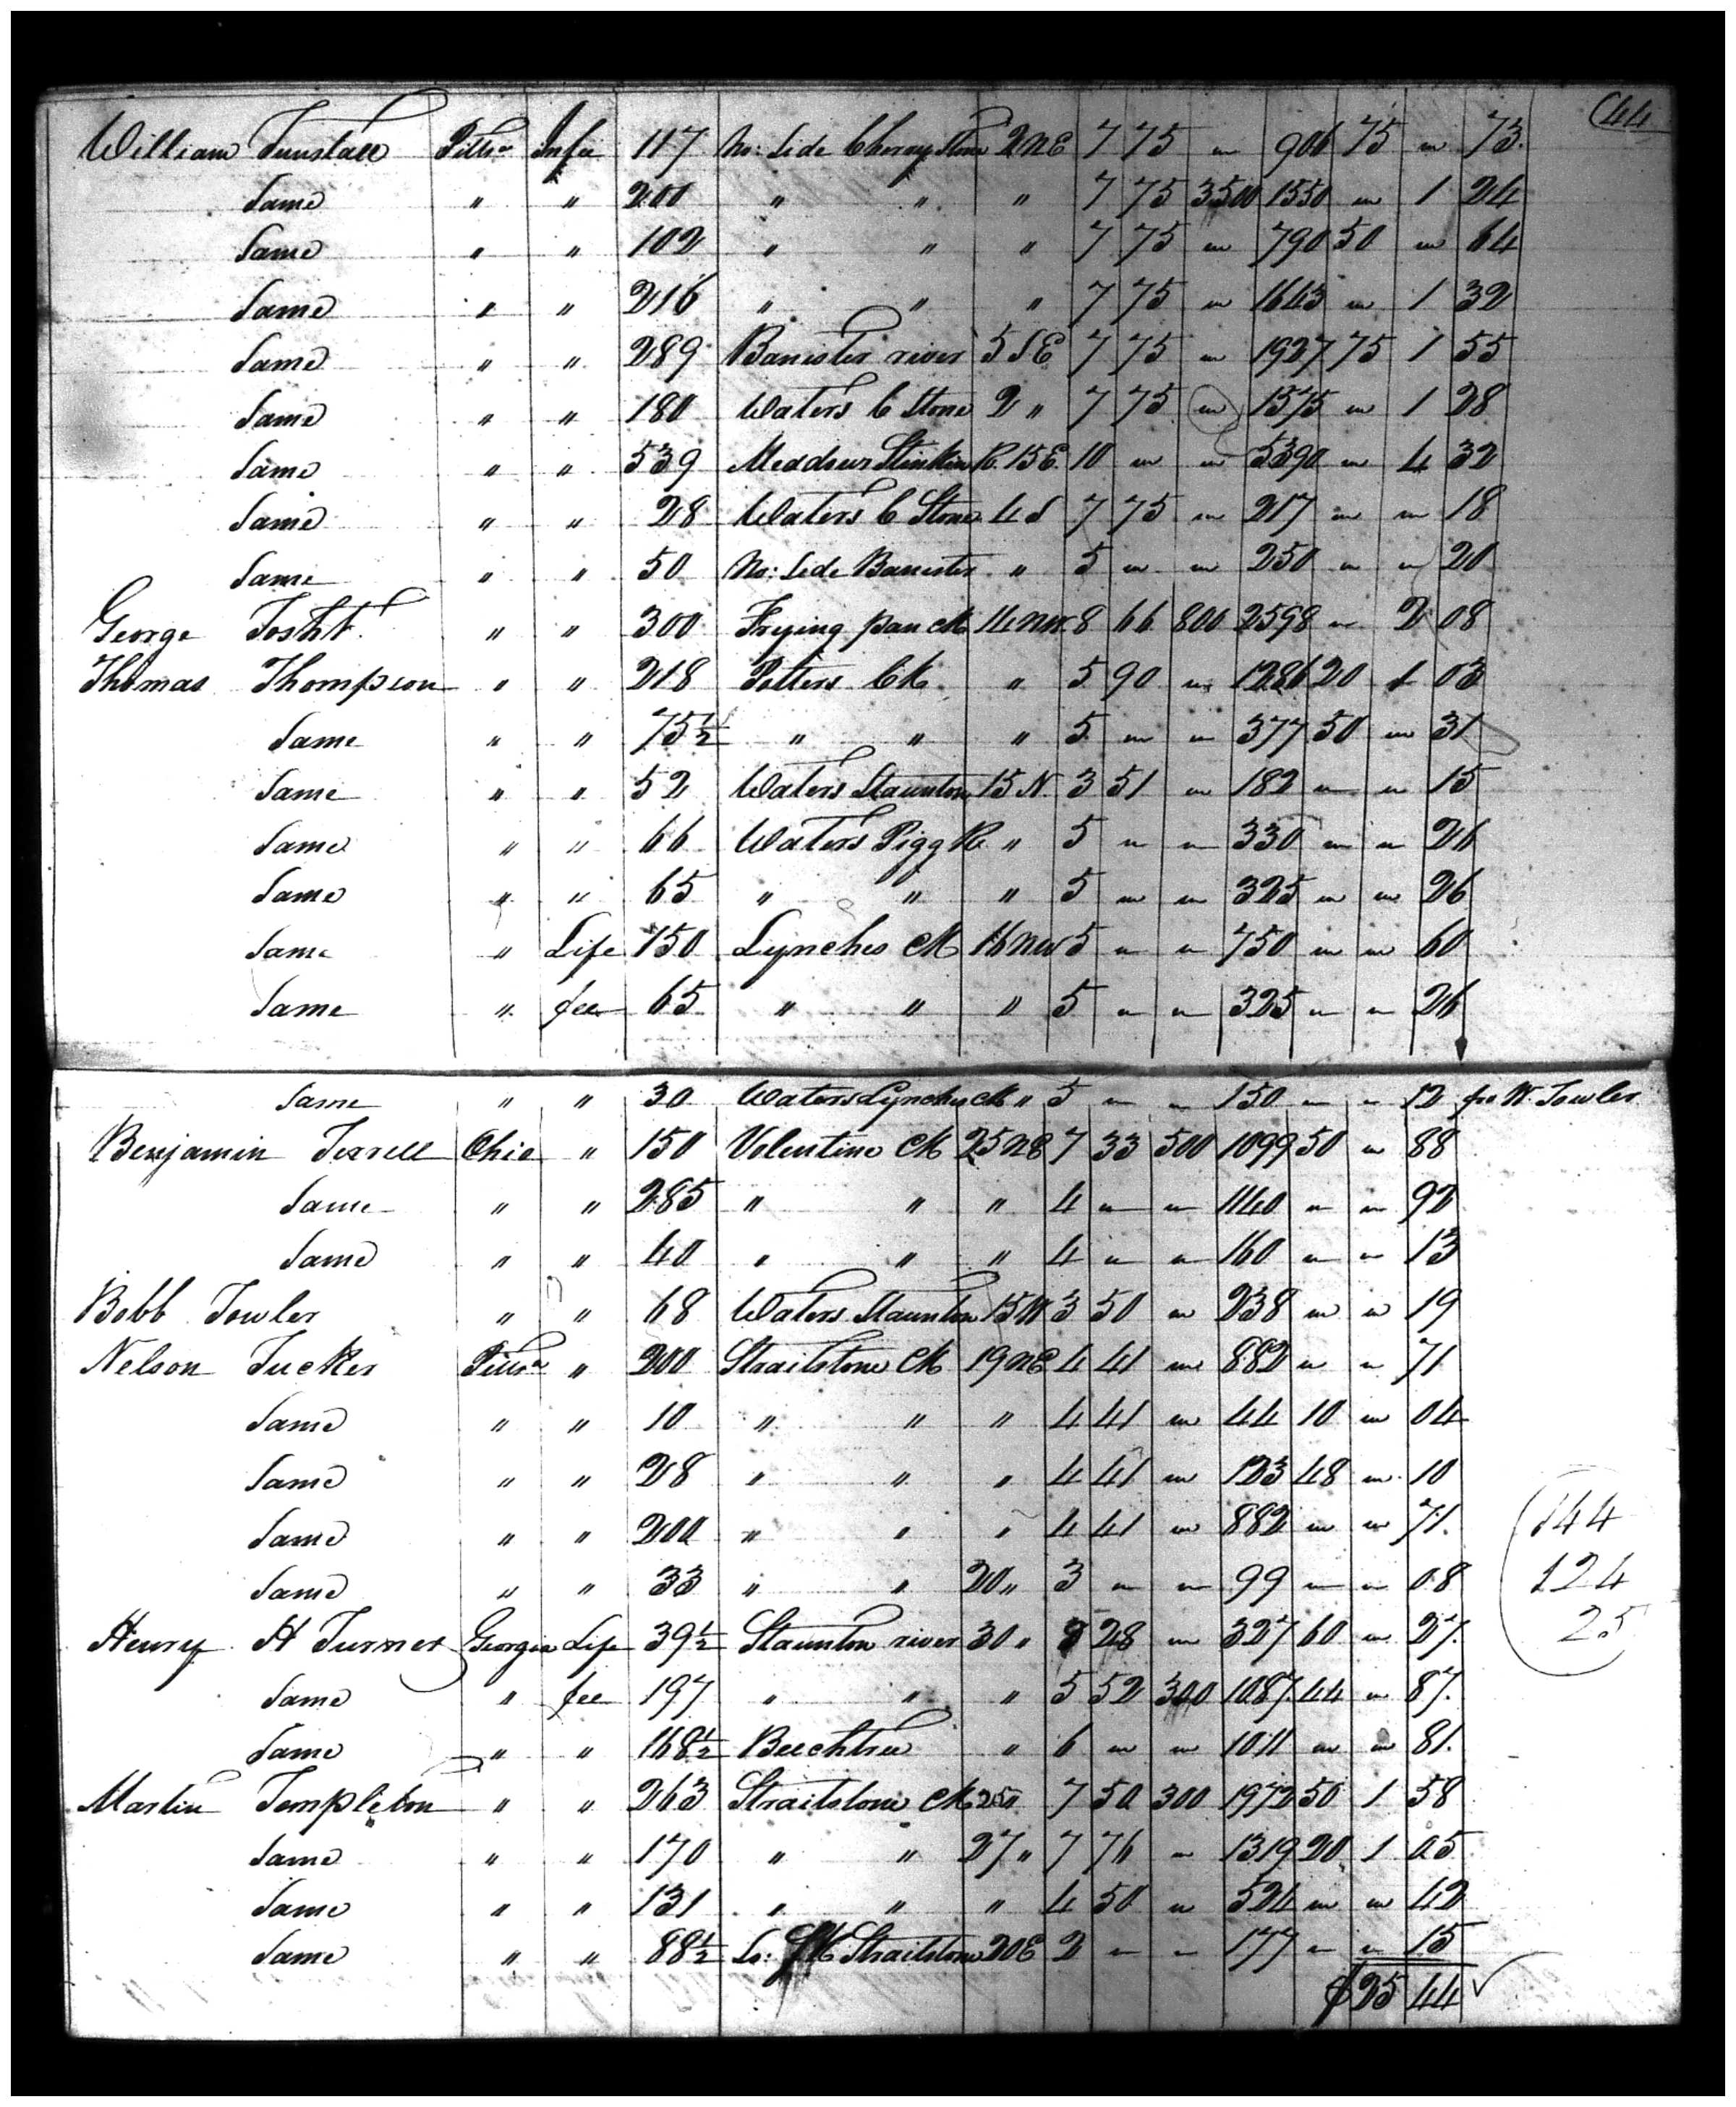 44
William Tunstall Pittsa In fee 117 No: Side Cherry Stone 2 NE 7 75 " 906 75 " 73
Same " " 200 " " " 7 75 3500 1550 " 1 24
Same " " 102 " " " 7 75 " 790 50 " 64
Same " " 216 " " " 7 75 " 1643 " 1 32
Same " " 289 Banister river 5 S E 7 75 " 1927 75 1 55
Same " " 180 Waters C Stone 2 " 7 75 " 1575 " 1 28
Same " " 539 Meadows Stinkin R. 15 E. 10 " " 5390 " 4 32
Same " " 28 Waters C Stone 4 S 7 75 " 217 " " 18
Same " " 50 No: Side Banister " 5 " " 250 " " 20
George Tosht " " 300 Frying pan Ck 14 NW. 8 66 800 2598 " 2 08
Thomas Thompson " " 218 Potters Ck " 5 90 " 1286 20 1 03
Same " " 75½ " " " 5 " " 377 50 " 31
Same " " 52 Waters Staunton 15 N. 3 51 " 182 " " 15
Same " " 66 Waters Pigg R " 5 " " 330 " " 26
Same " " 65 " " " 5 " " 325 " " 26
Same " Life 150 Lynches Ck 16 NW 5 " " 750 " " 60
Same " fee 65 " " " 5 " " 325 " " 26
Same " " 30 Waters Lynches Ck " 5 " " 150 " " 12 fro W. Towler
Benjamin Terrell Ohio " 150 Volentine Ck 25 NE 7 33 500 1099 50 " 88
Same " " 285 " " " 4 " " 1140 " " 92
Same " " 40 " " " 4 " " 160 " " 13
Bobb Towler " " 68 Waters Staunton 15 N 3 50 " 238 " " 19
Nelson Tucker Pittsa " 200 Straitstone Ck 19 NE 4 41 " 882 " " 71
Same " " 10 " " " 4 41 " 44 10 " 04
Same " " 28 " " " 4 41 " 123 48 " 10
Same " " 200 " " " 4 41 " 882 " " 71.
Same " " 33 " " 20 " 3 " " 99 " " 08
Henry H Turner Georgia Life 39½ Staunton river 30 " 8 28 " 327 60 " 27.
Same " fee 197 " " " 5 52 300 1087 44 " 87.
Same " " 168½ Beechtree " 6 " " 1011 " " 81.
Martin Templeton " " 263 Straitstone Ck 25 " 7 50 300 1972 50 1 58
Same " " 170 " " 27 " 7 76 " 1319 20 1 05
Same " " 131 " " " 4 50 " 524 " " 42
Same " " 88½ So: Straitstone 20 E 2 " " 177 " " 15
$25 44
144
124
25